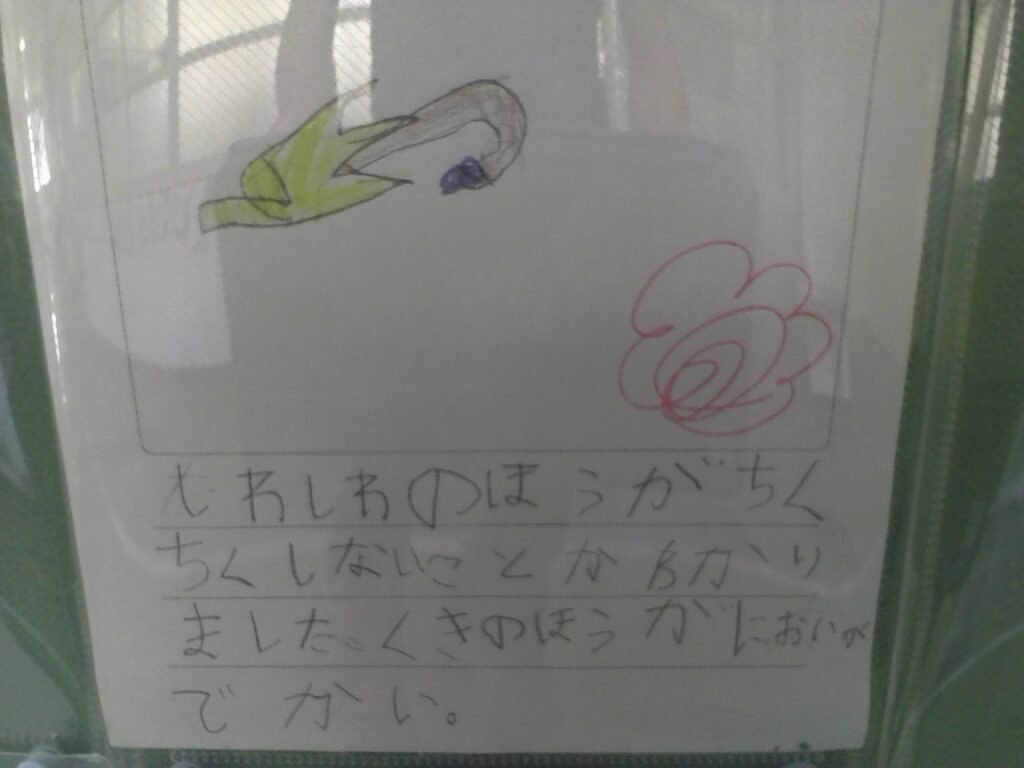 しわしわのほうがちく
ちくしないことがわかり
ました。くきのほうがにおいが
でかい。